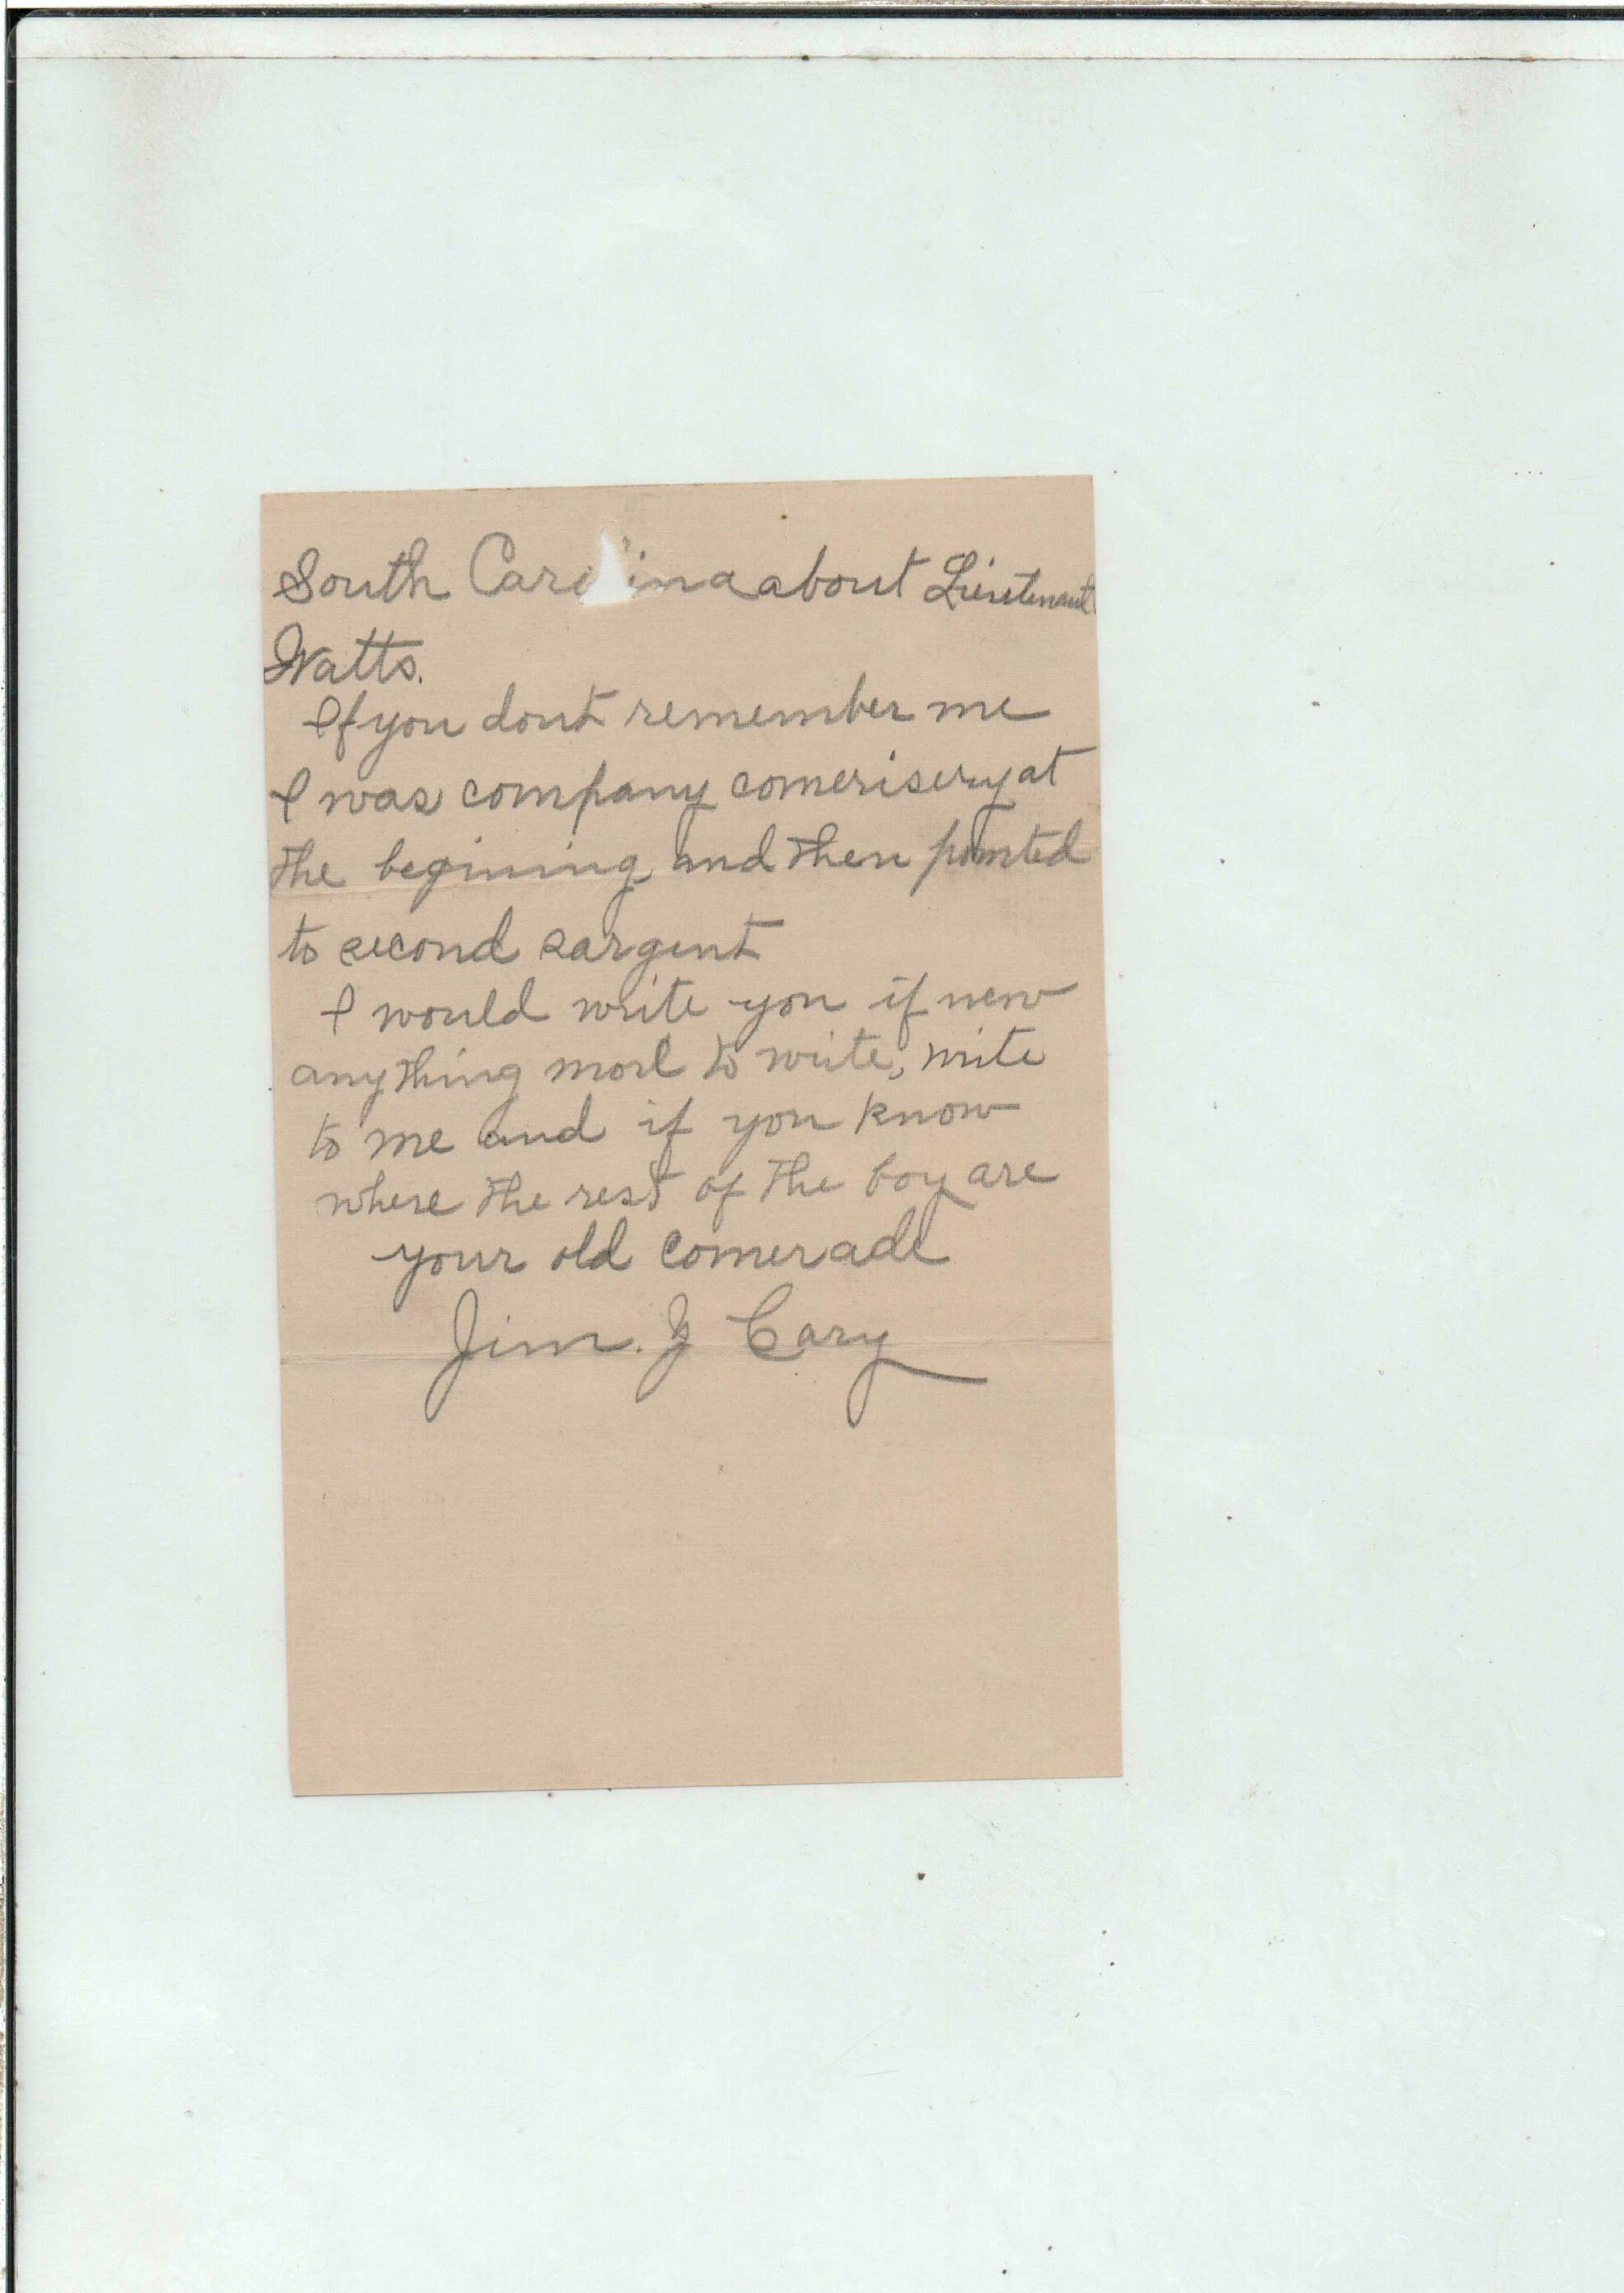 South Carolina about Lieutenant
Watts.
If you dont remember me
I was company comerisery at
the begining and then pointed
to second sargent
I would write you if new
anything more to write, write
to me and if you know
where the rest of the boy are
your old comerade
Jim. Cary